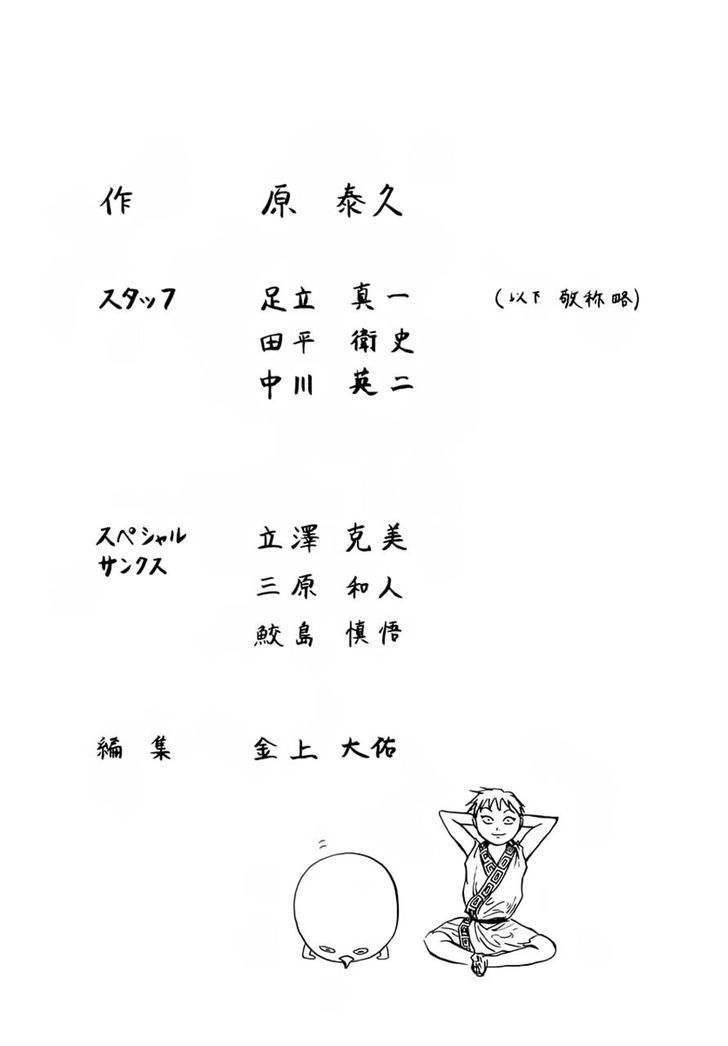 作 原 泰久
スタッフ 足立 真一 (以下 敬称略)
田平 衛史
中川 英二
スペシャル
サンクス
立澤 克美
三原 和人
鮫島 慎悟
編集 金上 大佑